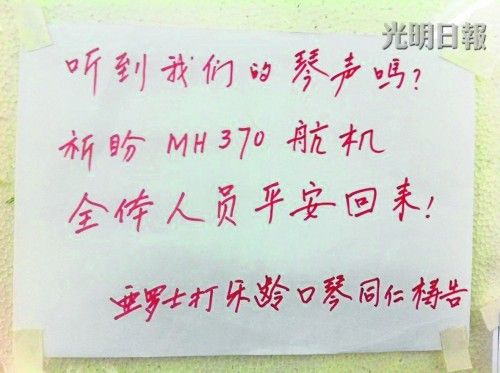 光明日報
听到我们的琴声吗?
祈盼MH370航机
全体人员平安回来!
亚罗士打乐龄口琴同仁祷告